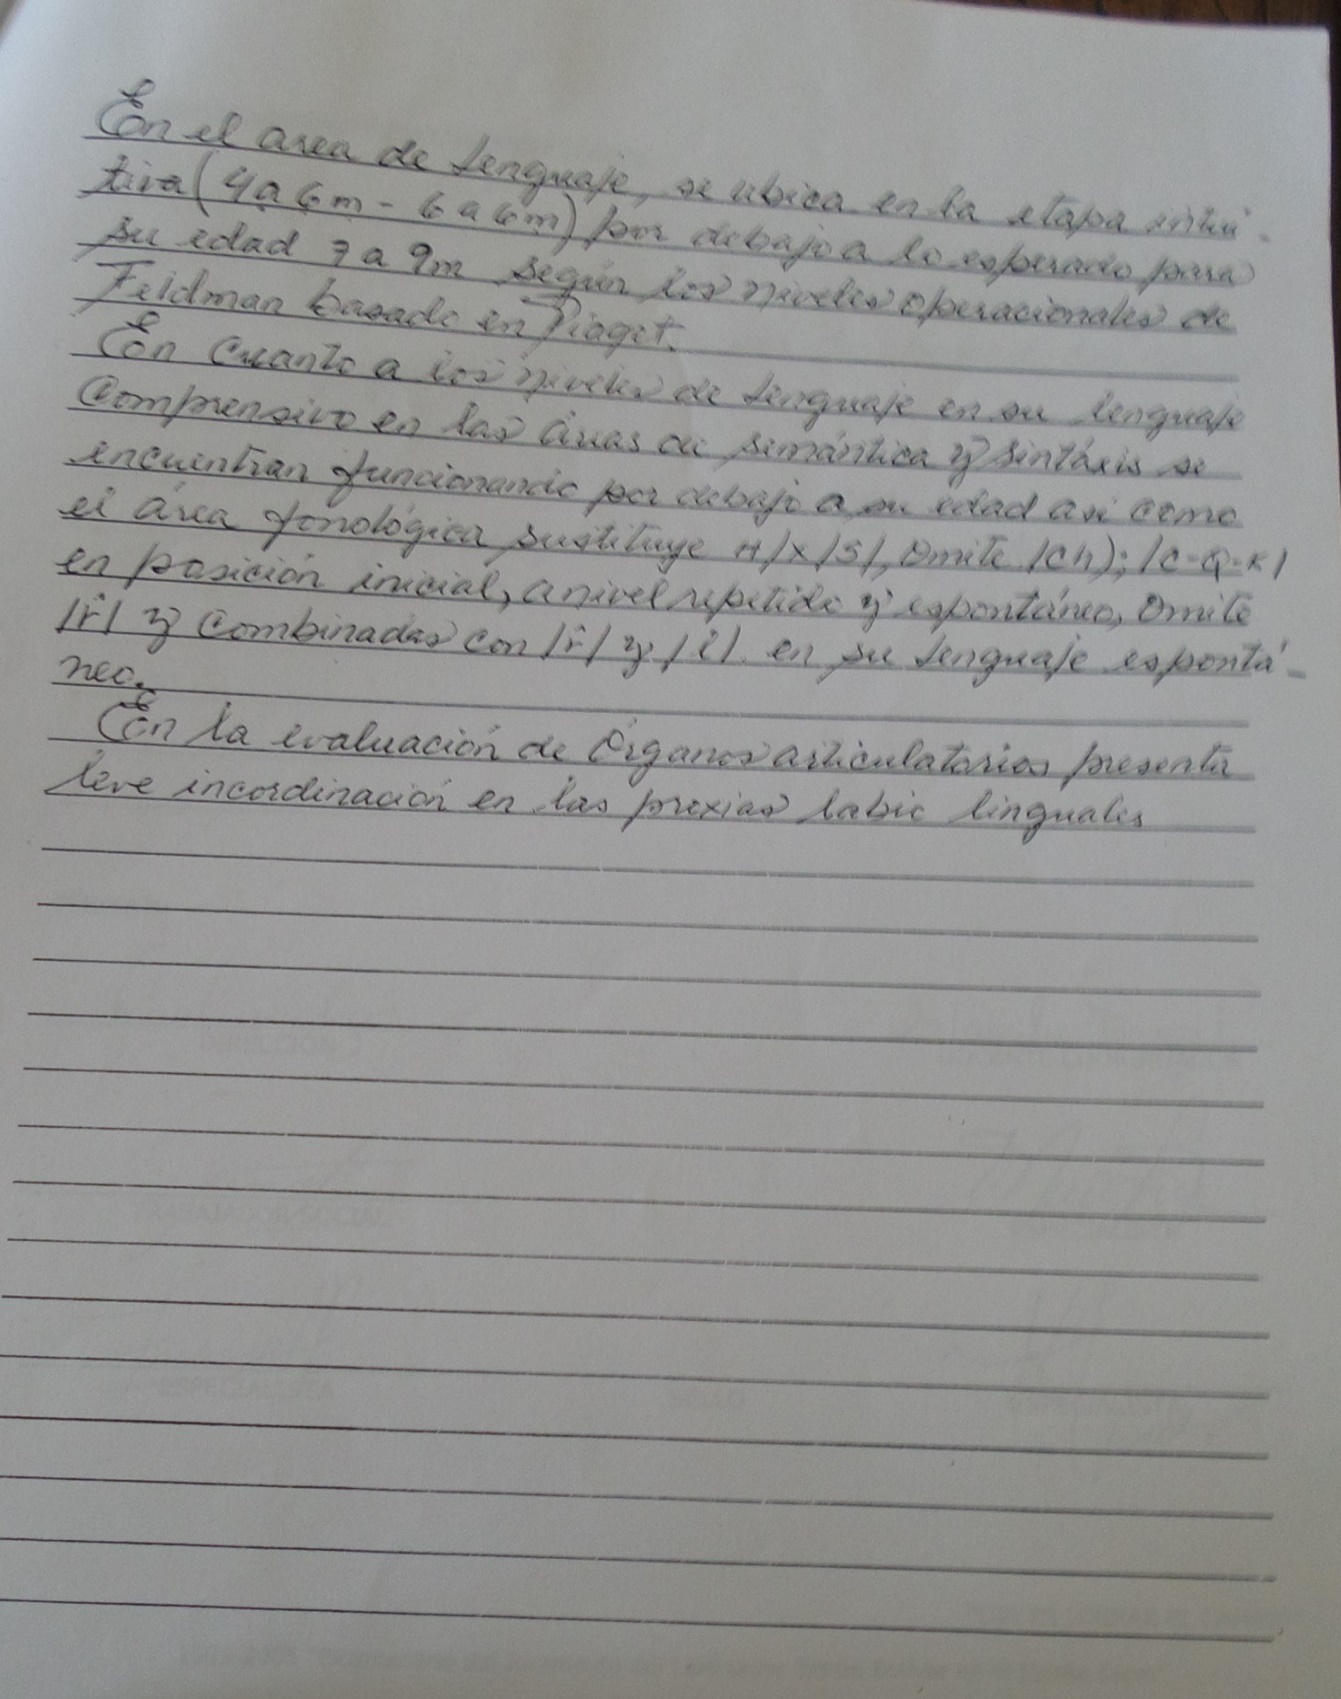 En el area de lenguaje, se ubica en la etapa intui-
tiva (4a 6m - 6a 6m) por debajo a lo esperado para
su edad 7a 9m según los niveles operacionales de
Feldman basado en Piaget.
En cuanto a los niveles de lenguaje en su lenguaje
Comprensivo en las áreas de semántica y sintáxis se
encuentran funcionando por debajo a su edad asi como
el área fonológica sustituye H/X/S/, Omite /Ch); /C-Q-K/
en posición inicial, a nivel repetido y espontáneo, Omite
/r̂/ y Combinadas con /r̂/ y /l/. en su lenguaje espontá-
neo.
En la evaluación de Organos articulatorios presenta
leve incordinación en las prexias labio linguales
TRABAJADOR SOCIAL
ESPECIALISTA
SELLO